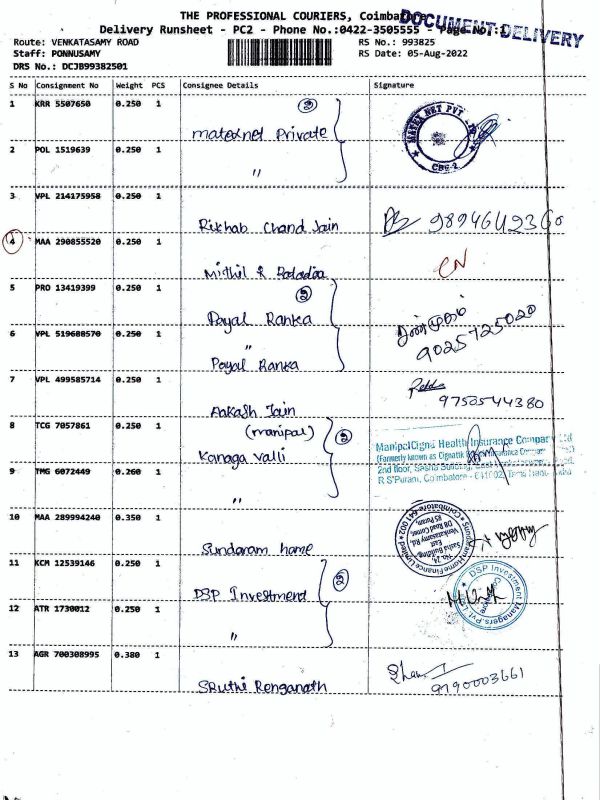 THE PROFESSIONAL COURIERS, Coimbatore
DOCUMENT DELIVERY
Delivery Runsheet - PC2 - Phone No.:0422-3505555 - Page No.:1
Route: VENKATASAMY ROAD RS No.: 993825
Staff: PONNUSAMY RS Date: 05-Aug-2022
DRS No.: DCJB99382501
S No Consignment No Weight PCS Consignee Details Signature
1 KRR 5507650 0.250 1
2
matexnet Private
2 POL 1519639 0.250 1
"
3 VPL 214175958 0.250 1
Rikhab Chand Jain
4 MAA 290855520 0.250 1
CN
Mithil R
5 PRO 13419399 0.250 1
2
Payal Ranka
9025725020
6 VPL 519688570 0.250 1
"
Payal Ranka
7 VPL 499585714 0.250 1
9750544380
Aakash Jain
(manipal)
8 TCG 7057861 0.250 1
2
Kanaga valli
ManipalCigna Health Insurance Company
(Formerly known as Cigna
2nd floor,
R S Puram, Coimbatore - 641002
9 TMG 6072449 0.260 1
"
10 MAA 289994240 0.350 1
Sundaram home
Sundaram Home Finance Limited
Coimbatore-641 002
No. 24,
Sasha Building,
East
Venkatasamy Rd,
DB Road Corner,
RS Puram,
11 KCM 12539146 0.250 1
2
DSP Investment
DSP Investment Managers Pvt. Ltd.
12 ATR 1730012 0.250 1
"
13 AGR 700308995 0.380 1
9190003661
Sruthi Renganath